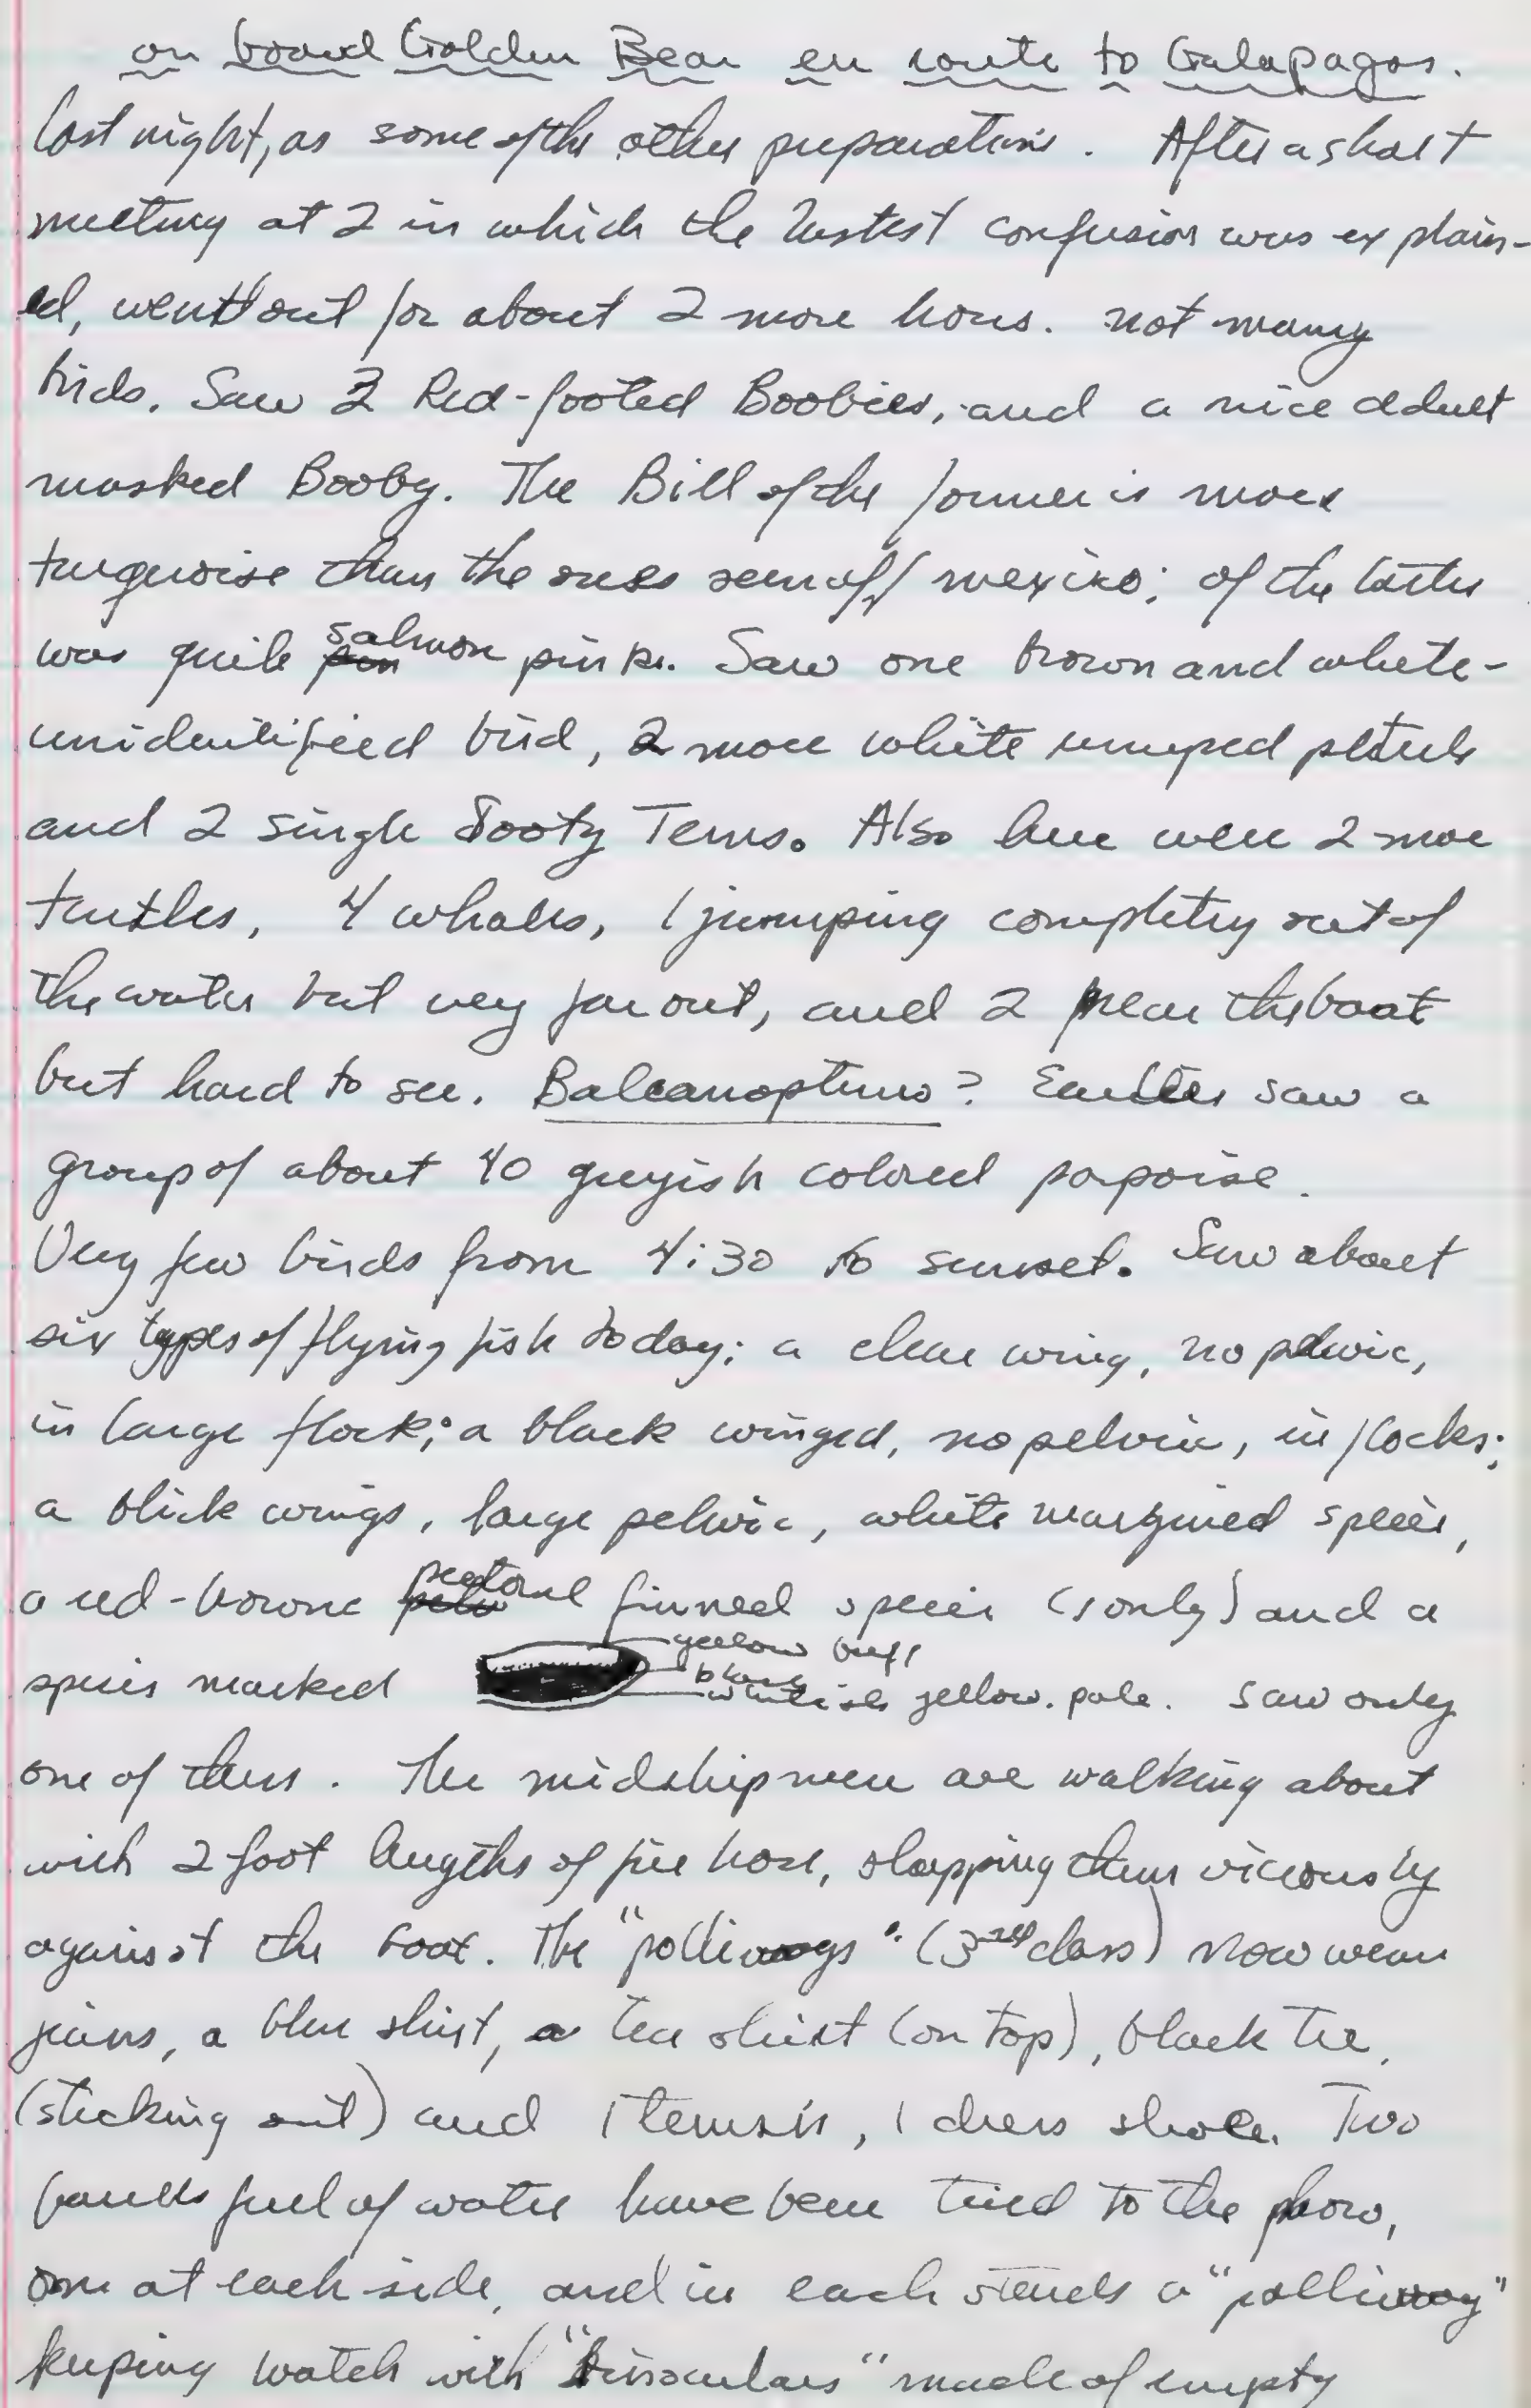 on board Golden Bear en route to Galapagos.
last night, as some of the other preparations. After a short
meeting at 2 in which the lastest confusion was explain-
ed, went out for about 2 more hours. not many
birds. Saw 2 Red-footed Boobies, and a nice adult
masked Booby. The Bill of the former is more
turquoise than the ones seen off mexico; of the latter
was quite salmon pink. Saw one brown and white-
unidentified bird, 2 more white rumped petrels
and 2 single Sooty Terns. Also here were 2 more
turtles, 4 whales, 1 jumping completly out of
the water but very far out, and 2 near the boat
but hard to see. Baleanopterus? Earlier saw a
group of about 40 greyish colored porpoise.
Very few birds from 4:30 to sunset. Saw about
six types of flying fish today; a clear wing, no pelvic,
in large flock; a black winged, no pelvic, in flocks;
a black wings, large pelvic, white margined species,
a red-brown pectoral finned species (1 only) and a
yellow buff
black
species marked whitish yellow. pale. saw only
one of these. The midshipmen are walking about
with 2 foot lengths of fire hose, slapping them viciously
against the boat. The "polliwogs" (3rd class) now wear
jeans, a blue shirt, a tee shirt (on top), black tie,
(sticking out) and 1 tennis, 1 dress shoe. Two
barrels full of water have been tied to the prow,
one at each side, and in each stands a "polliwog"
keeping watch with "binoculars" made of empty